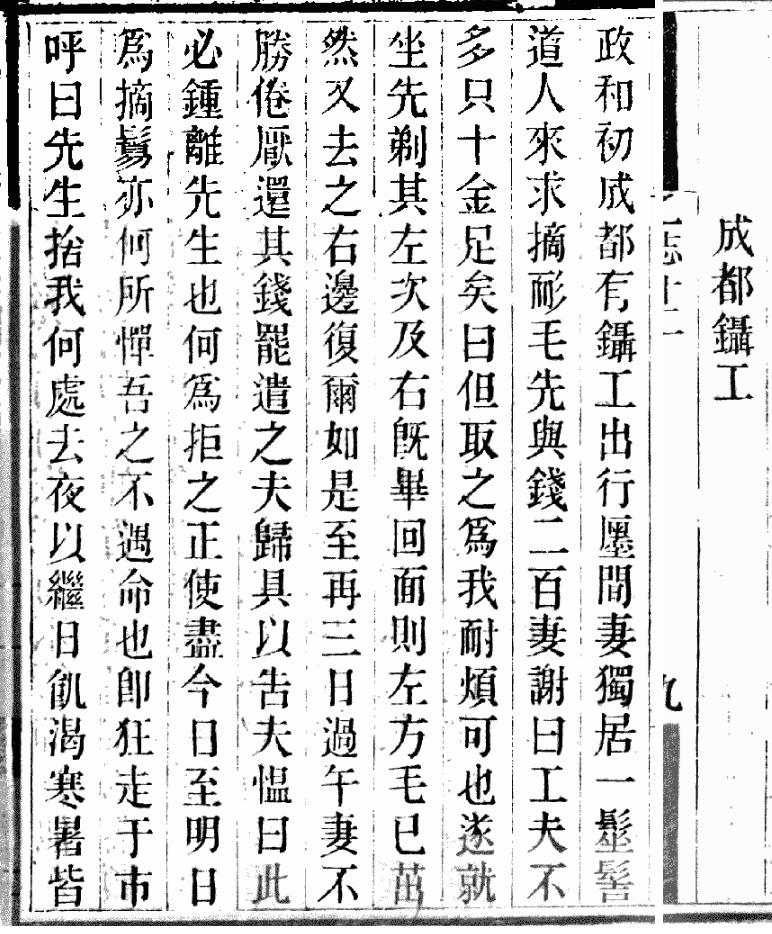 成都鑷工
志十二
九
政和初成都有鑷工出行廛間妻獨居一髽髻
道人來求摘耏毛先與錢二百妻謝曰工夫不
多只十金足矣曰但取之爲我耐煩可也遂就
坐先剃其左次及右旣畢回面則左方毛已茁
然又去之右邊復爾如是至再三日過午妻不
勝倦厭還其錢罷遣之夫歸具以吿夫慍曰此
必鍾離先生也何爲拒之正使盡今日至明日
爲摘鬄亦何所憚吾之不遇命也卽狂走于市
呼曰先生捨我何處去夜以繼日飢渴寒暑皆